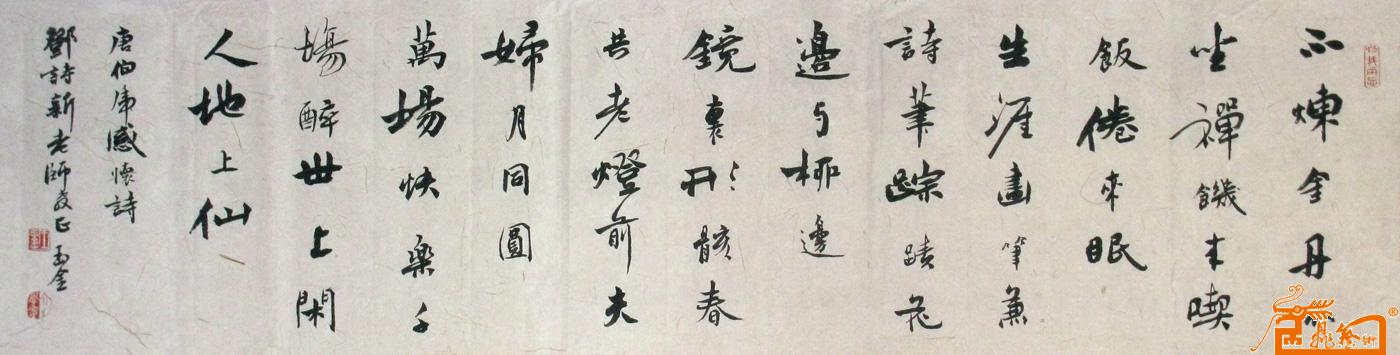 不煉金丹不
坐禪饑来喫
飯倦来眠
生涯畫筆兼
詩筆踪蹟花
邊与柳邊
鏡裏形骸春
共老燈前夫
婦月同圓
萬場快樂千
場醉世上閑
人地上仙
唐伯虎感懷詩
鄧詩新老師正 玉金